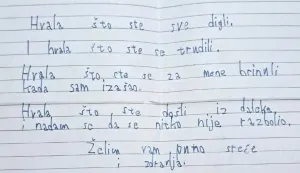 Hvala što ste sve digli.
I hvala što ste se trudili.
Hvala što ste se za mene brinuli
kada sam izašao.
Hvala što ste došli iz daleka
i nadam se da se nitko nije razbolio.
Želim vam puno sreće
i zdravlja.